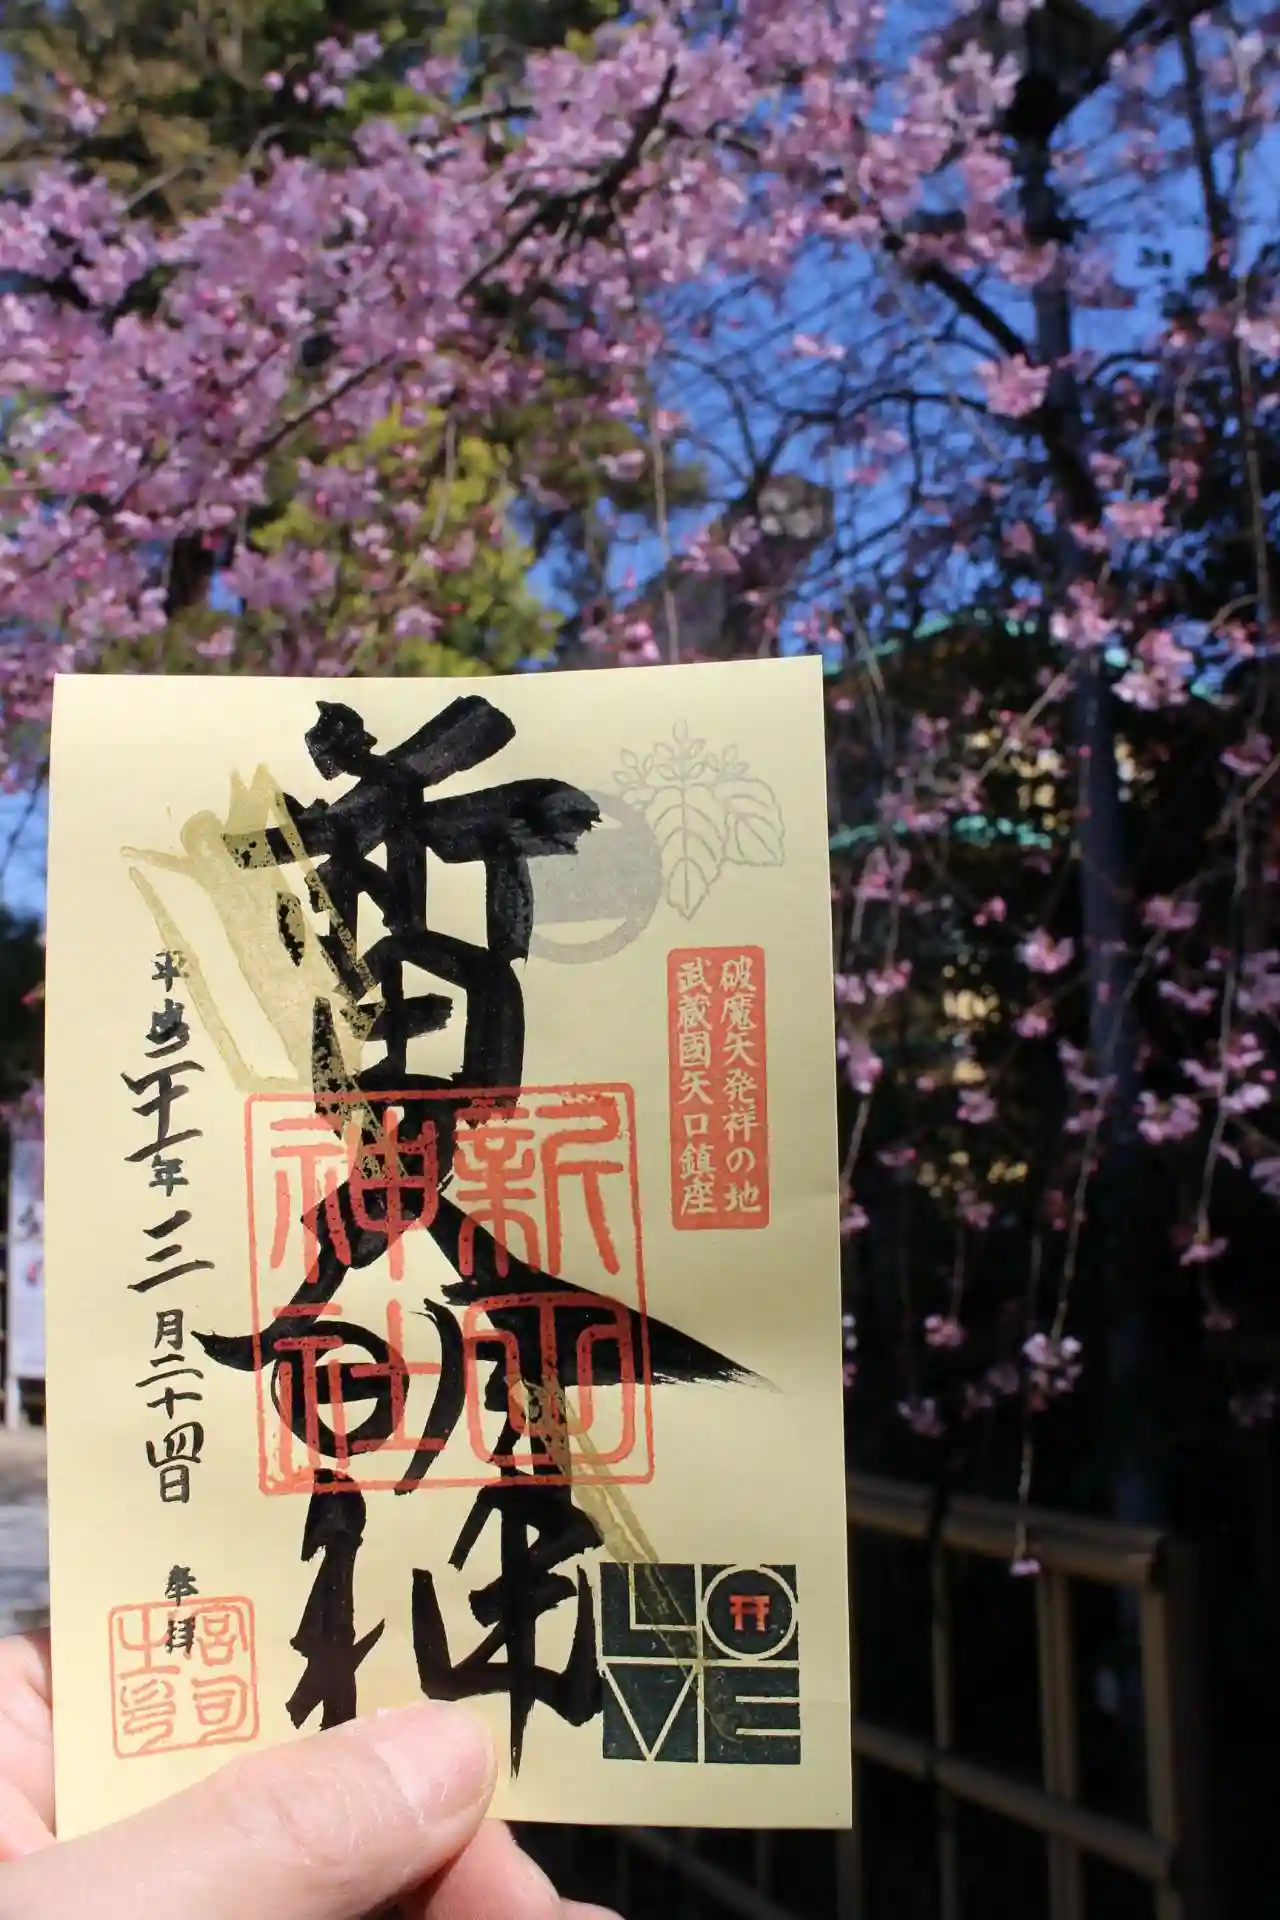 破魔矢発祥の地
武蔵國矢口鎮座
新田
神社
平成三十一年三月二十四日
奉拝
宮司
之印
LOVE